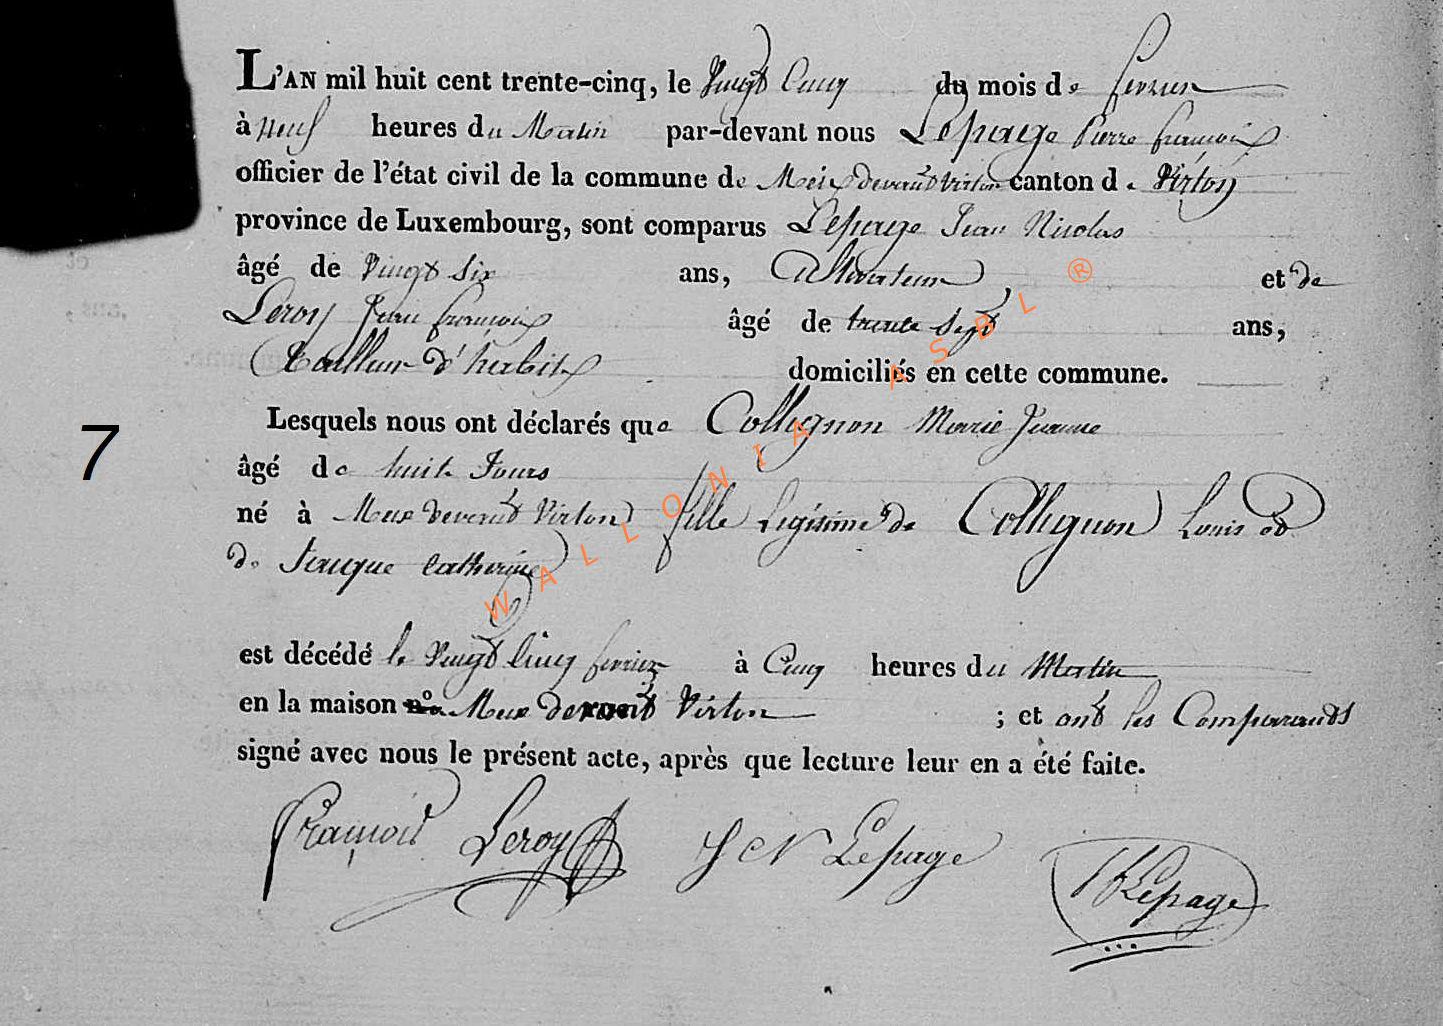 L'AN mil huit cent trente-cinq, le Vingt Cinq du mois de fevrier
à neuf heures du Matin par-devant nous Lepage Pierre françois
officier de l'état civil de la commune de Meix devant Virton canton de Virton
province de Luxembourg, sont comparus Lepage Jean Nicolas
âgé de Vingt Six ans, Cultivateur, et de
Leroy Jean françois âgé de trente Sept ans,
tailleur d'habits domiciliés en cette commune.
Lesquels nous ont déclarés que Collignon Marie Jeanne
7
âgé de huit Jours
né à Meix devant Virton fille Legitime de Collignon Louis et
de Jauque Catherine
est décédé le Vingt Cinq fevrier à Cinq heures du Matin
en la maison n.º Meix devant Virton ; et ont les Comparants
signé avec nous le présent acte, après que lecture leur en a été faite.
françois Leroy J N Lepage Lepage
WALLONIA ASBL ®